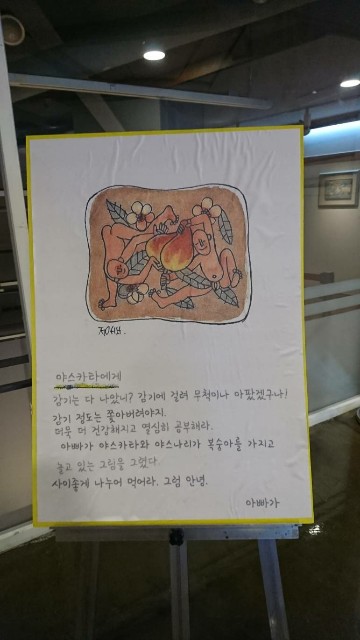 야스카라에게
감기는 다 나았니? 감기에 걸려 무척이나 아팠겠구나!
감기 정도는 쫓아버려야지.
더욱 더 건강해지고 열심히 공부해라.
아빠가 야스카라와 야스나리가 복숭아를 가지고
놀고 있는 그림을 그렸다.
사이좋게 나누어 먹어라. 그럼 안녕.
아빠가